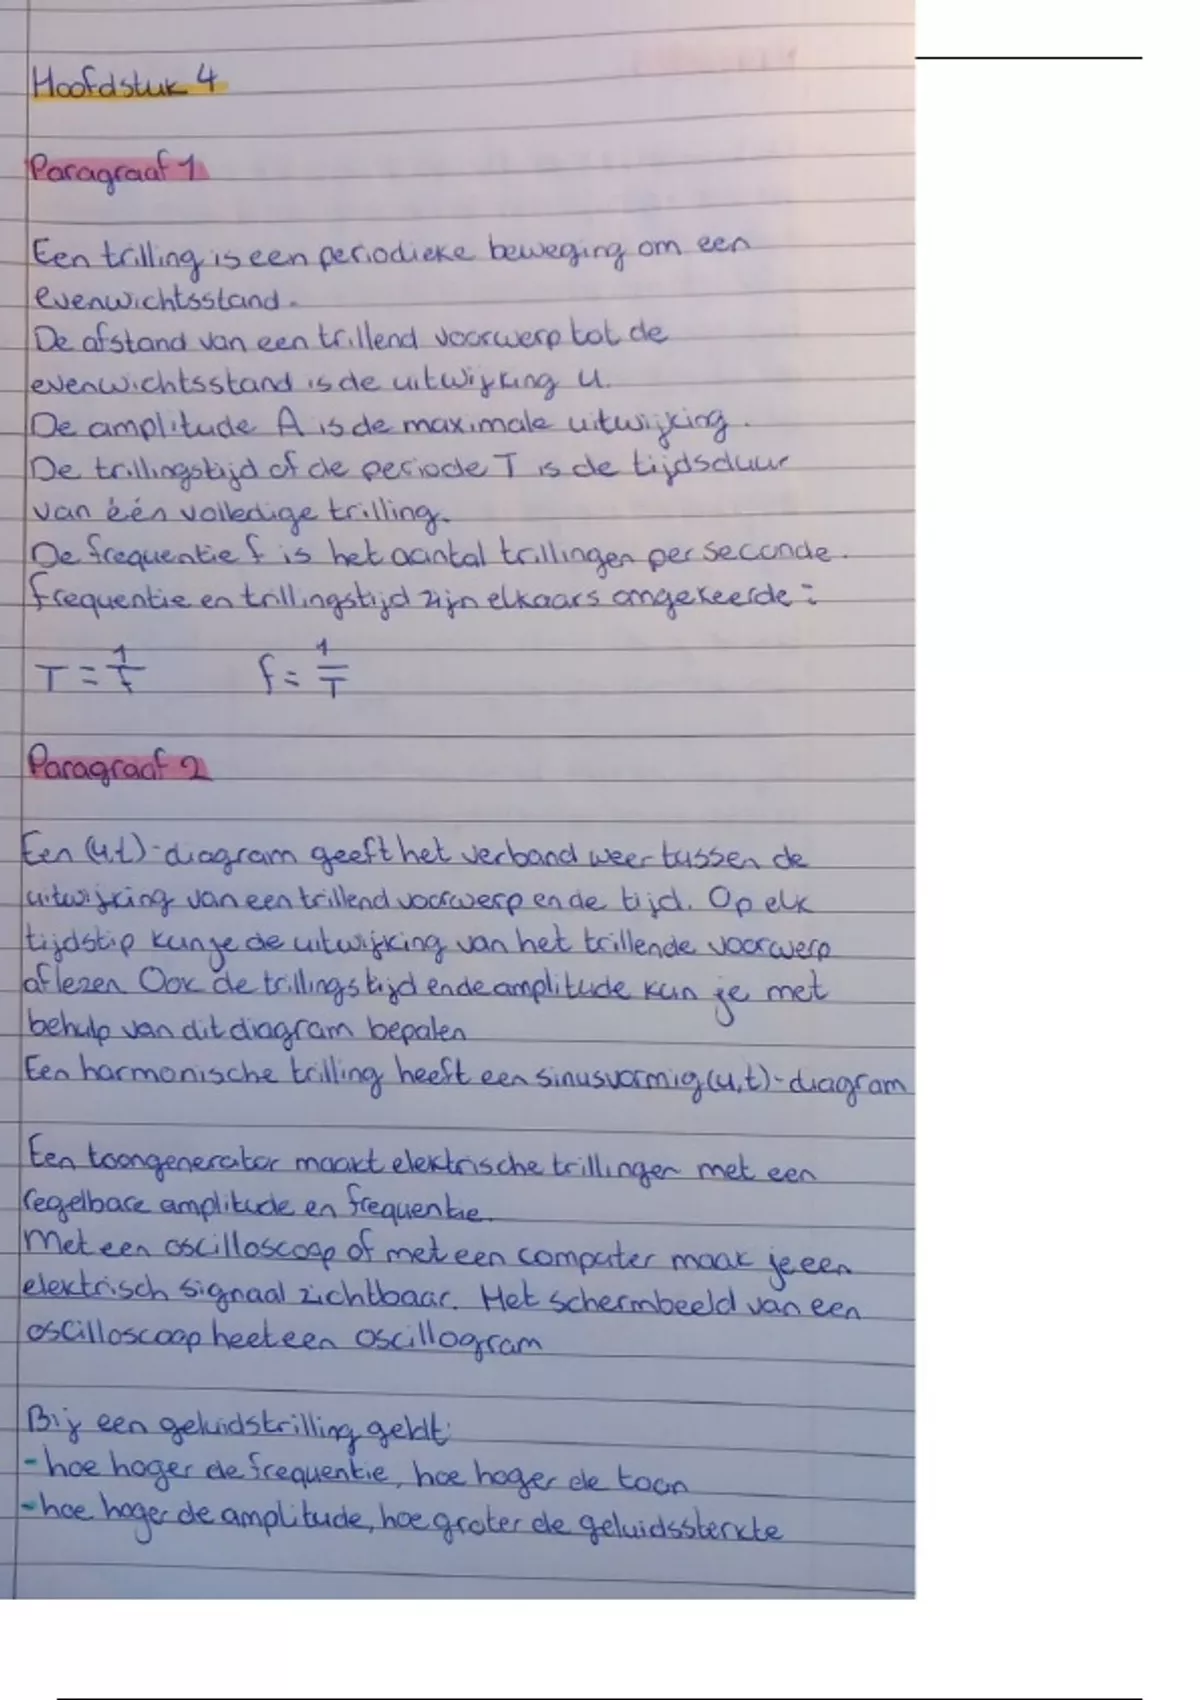 Hoofdstuk 4
Paragraaf 1
Een trilling is een periodieke beweging om een
evenwichtsstand.
De afstand van een trillend voorwerp tot de
evenwichtsstand is de uitwijking u.
De amplitude A is de maximale uitwijking.
De trillingstijd of de periode T is de tijdsduur
van één volledige trilling.
De frequentie f is het aantal trillingen per seconde.
frequentie en trillingstijd zijn elkaars omgekeerde:
T = 1/f f = 1/T
Paragraaf 2
Een (u,t)-diagram geeft het verband weer tussen de
uitwijking van een trillend voorwerp en de tijd. Op elk
tijdstip kun je de uitwijking van het trillende voorwerp
aflezen Ook de trillingstijd en de amplitude kun je met
behulp van dit diagram bepalen
Een harmonische trilling heeft een sinusvormig (u,t)-diagram
Een toongenerator maakt elektrische trillingen met een
regelbare amplitude en frequentie.
Met een oscilloscoop of met een computer maak je een
elektrisch signaal zichtbaar. Het schermbeeld van een
oscilloscoop heet een oscillogram
Bij een geluidstrilling geldt:
-hoe hoger de frequentie, hoe hoger de toon
-hoe hoger de amplitude, hoe groter de geluidssterkte